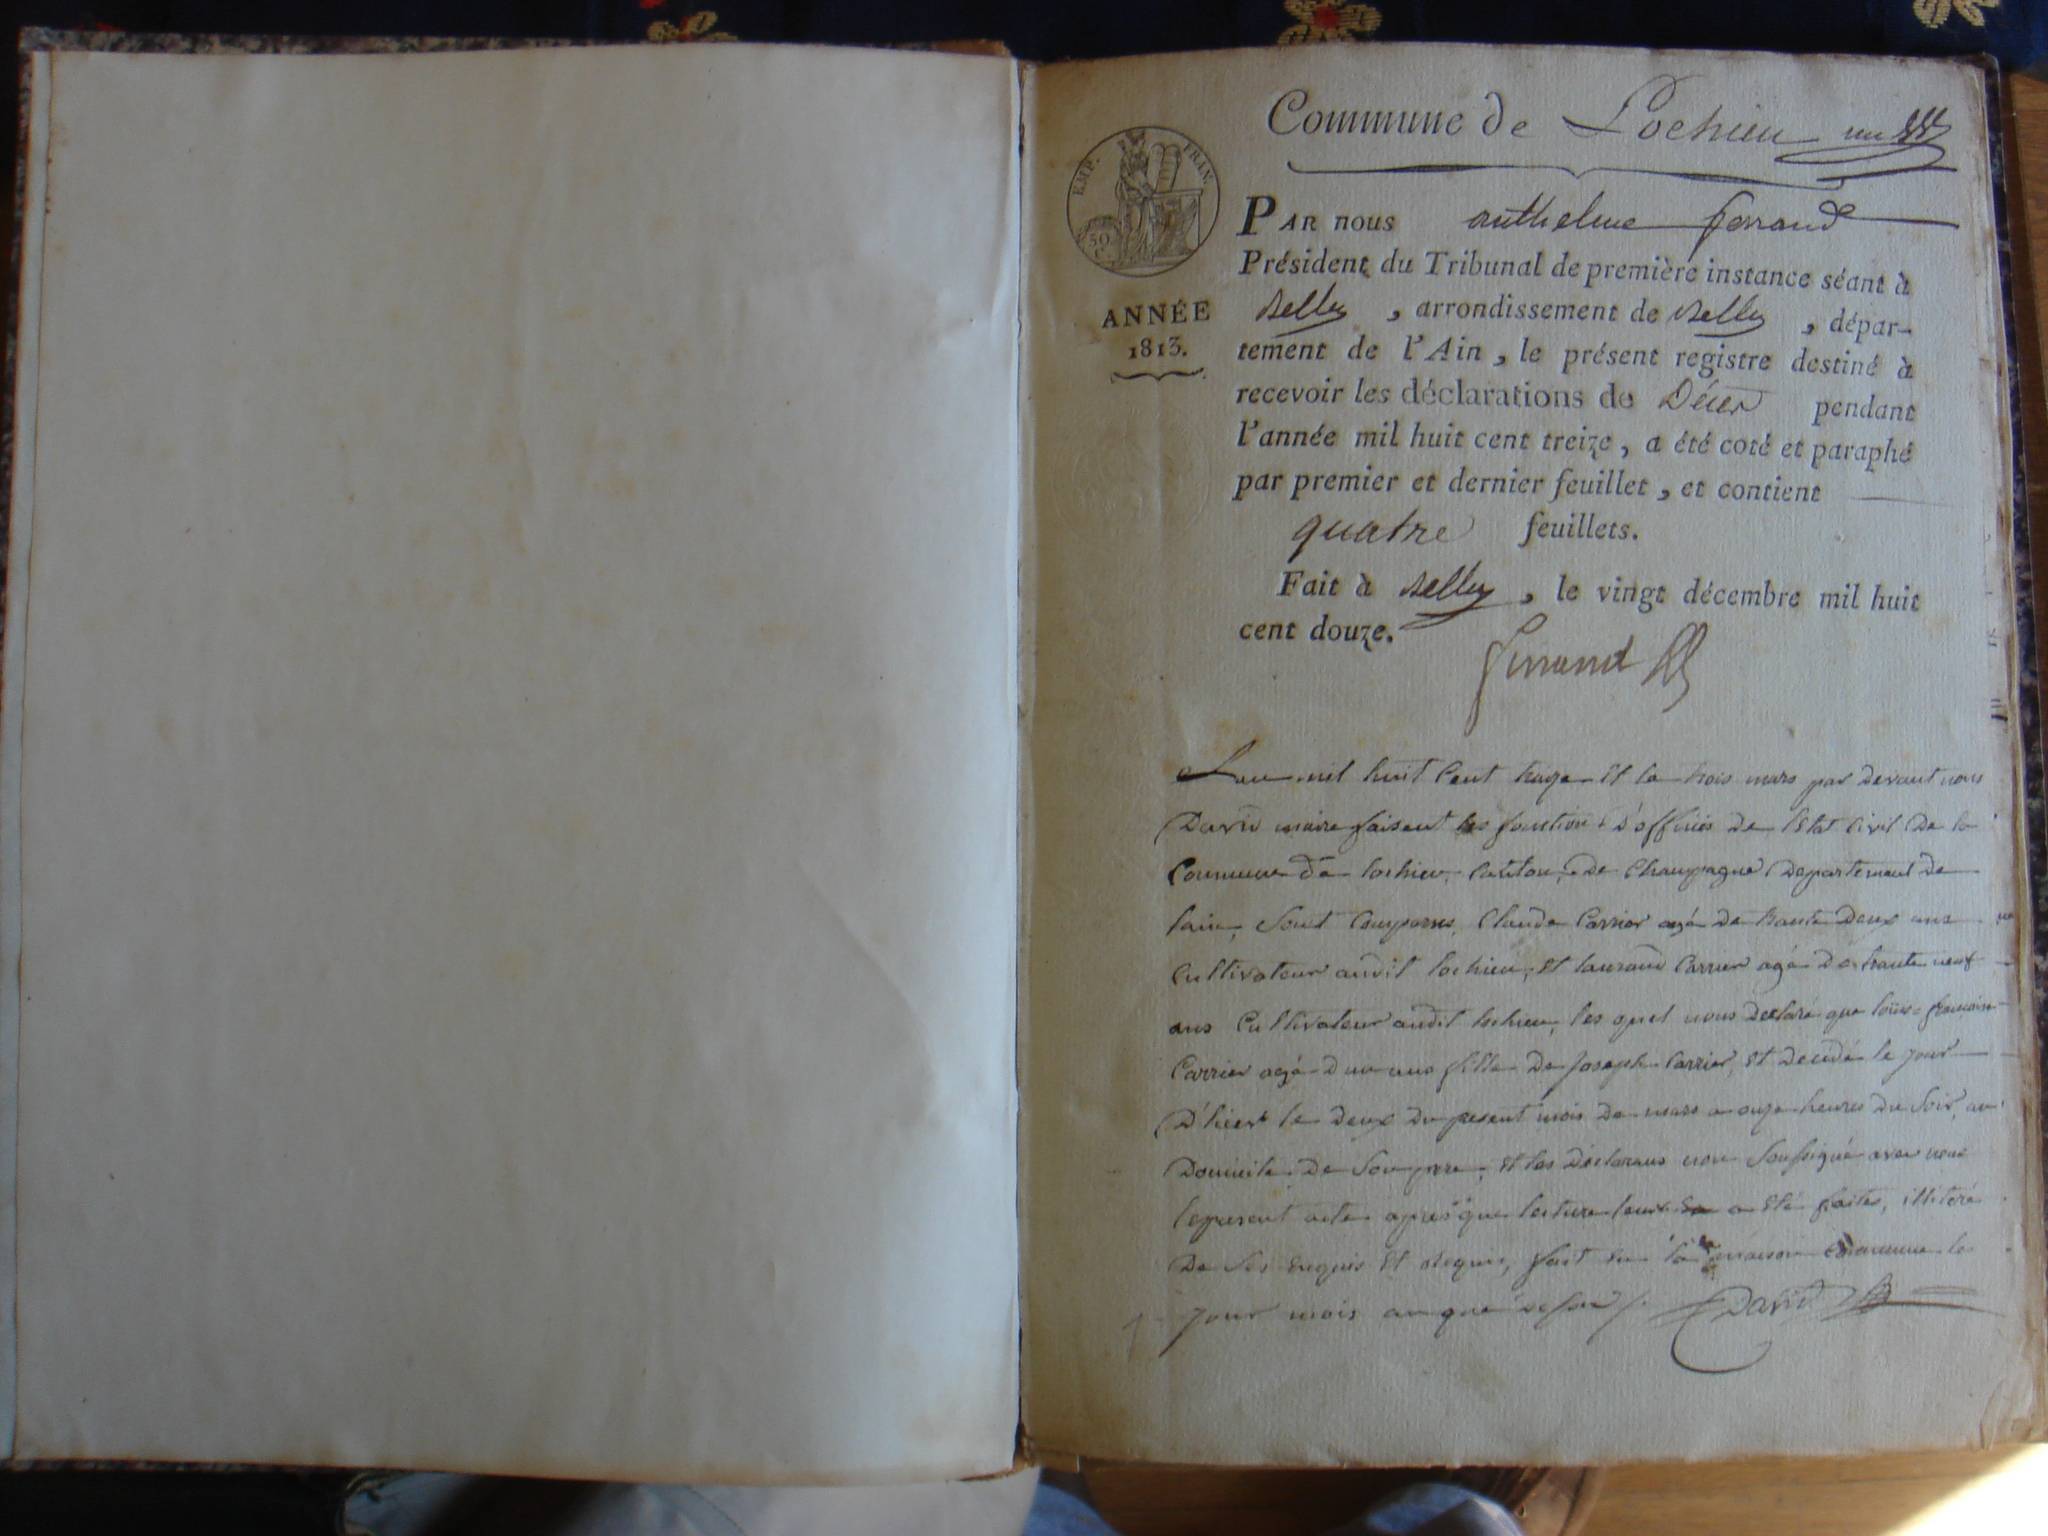 Commune de Lochieu un
EMP. FRAN.
50
C.
ANNÉE
1813.
PAR nous anthelme ferrand
Président du Tribunal de première instance séant à
Belley, arrondissement de Belley, dépar-
tement de l'Ain, le présent registre destiné à
recevoir les déclarations de Décès pendant
l'année mil huit cent treize, a été coté et paraphé
par premier et dernier feuillet, et contient
quatre feuillets.
Fait à Belley, le vingt décembre mil huit
cent douze.
ferrand
L'an mil huit Cent treize Et le trois mars par devant nous
David maire faisent les fonction d'officiés de l'Etat Civil De la
Commune De lochieu, Canton De Champagne Departement De
lain, Sont Comparus, Claude Carrier agé De trante Deux ans
Cultivateur audit lochieu, Et laurand Carrier agé De trante neuf
ans Cultivateur audit lochieu, les quel nous Declaré que louis francoise
Carrier agé d'un ans fille De Joseph Carrier, Et Décidé le jour
D'hiert le deux du present mois De mars a onze heures du Soir, au
Domicile De Son pere, Et les Déclarans non Soussigné avec nous
le present acte apres que lecture leur a Eté faites, illiteré
De Ses Enquis Et Requis, fait En la maison Commune le
Jour mois an que desus /. David